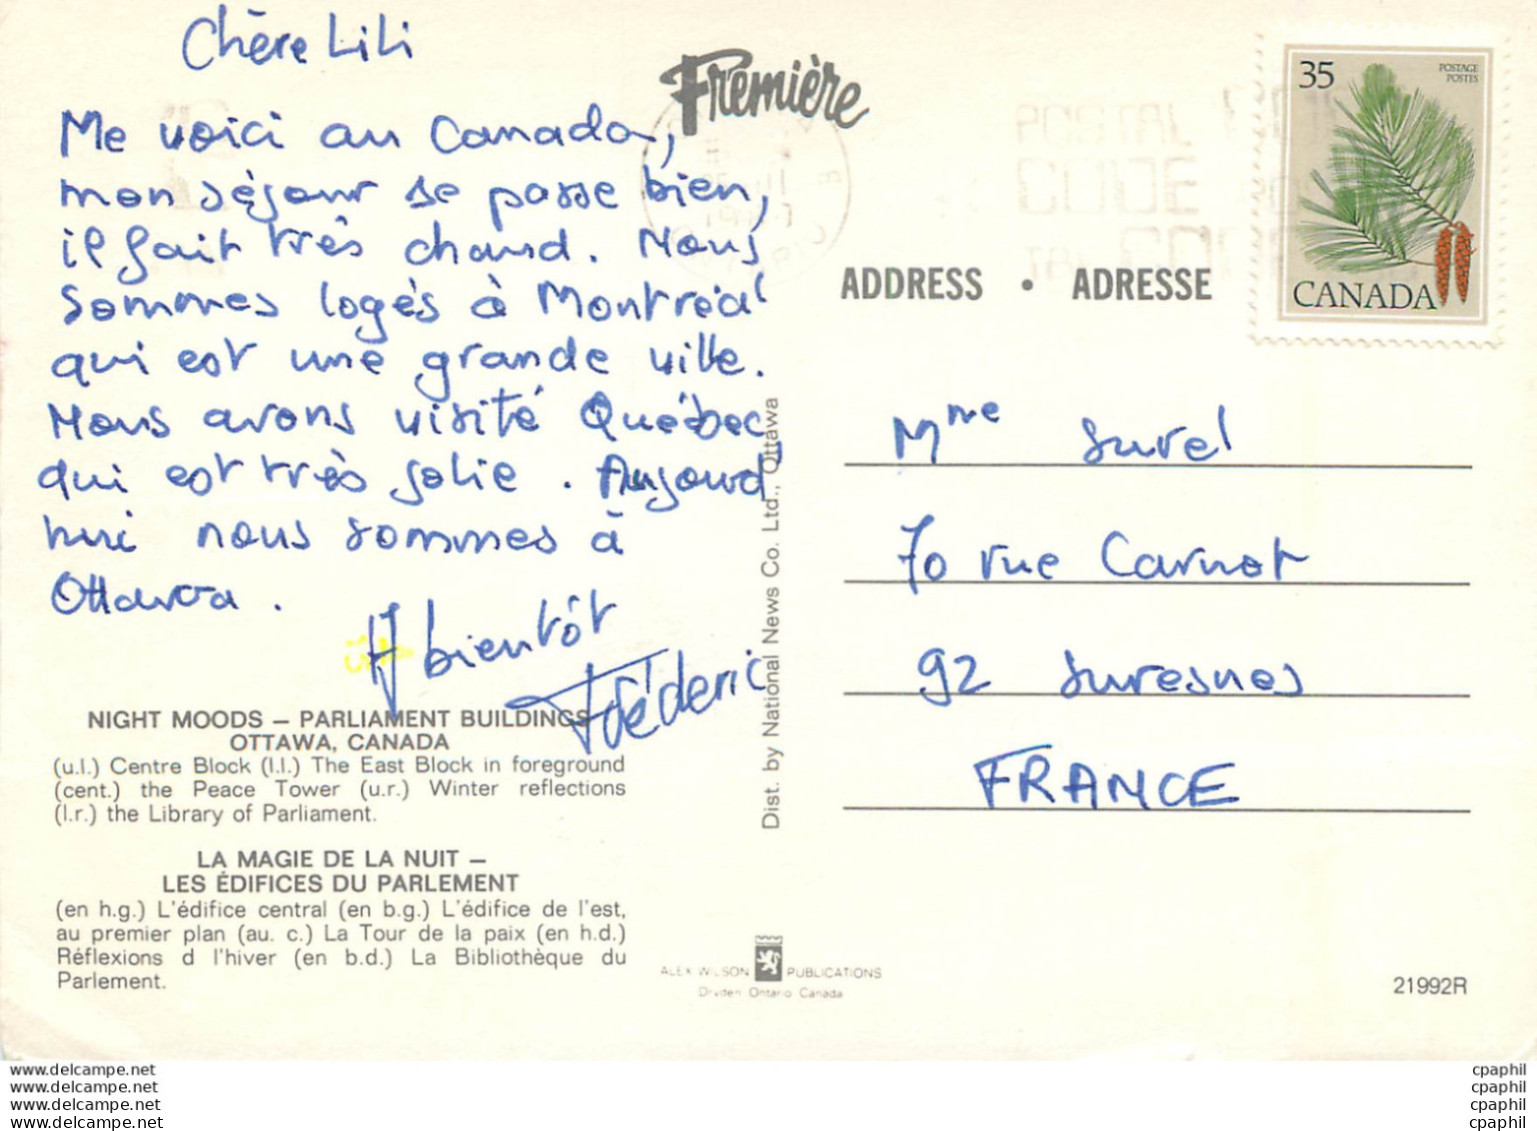 Chère Lili
Me voici au Canada,
mon séjour se passe bien,
il fait très chaud. Nous
sommes logés à Montréal
qui est une grande ville.
Nous avons visité Québec,
qui est très jolie. Aujourd'
hui nous sommes à
Ottawa.
A bientôt
Frédéric
NIGHT MOODS – PARLIAMENT BUILDINGS
OTTAWA, CANADA
(u.l.) Centre Block (l.l.) The East Block in foreground
(cent.) the Peace Tower (u.r.) Winter reflections
(l.r.) the Library of Parliament.
LA MAGIE DE LA NUIT –
LES ÉDIFICES DU PARLEMENT
(en h.g.) L'édifice central (en b.g.) L'édifice de l'est,
au premier plan (au. c.) La Tour de la paix (en h.d.)
Réflexions d l'hiver (en b.d.) La Bibliothèque du
Parlement.
Première
Dist. by National News Co. Ltd., Ottawa
ALEX WILSON PUBLICATIONS
Dryden Ontario Canada
POSTAL
CODE
35
POSTAGE
POSTES
CANADA
ADDRESS • ADRESSE
Mme Surel
70 rue Carnot
92 Suresnes
FRANCE
21992R
www.delcampe.net cpaphil
www.delcampe.net cpaphil
www.delcampe.net cpaphil
www.delcampe.net cpaphil